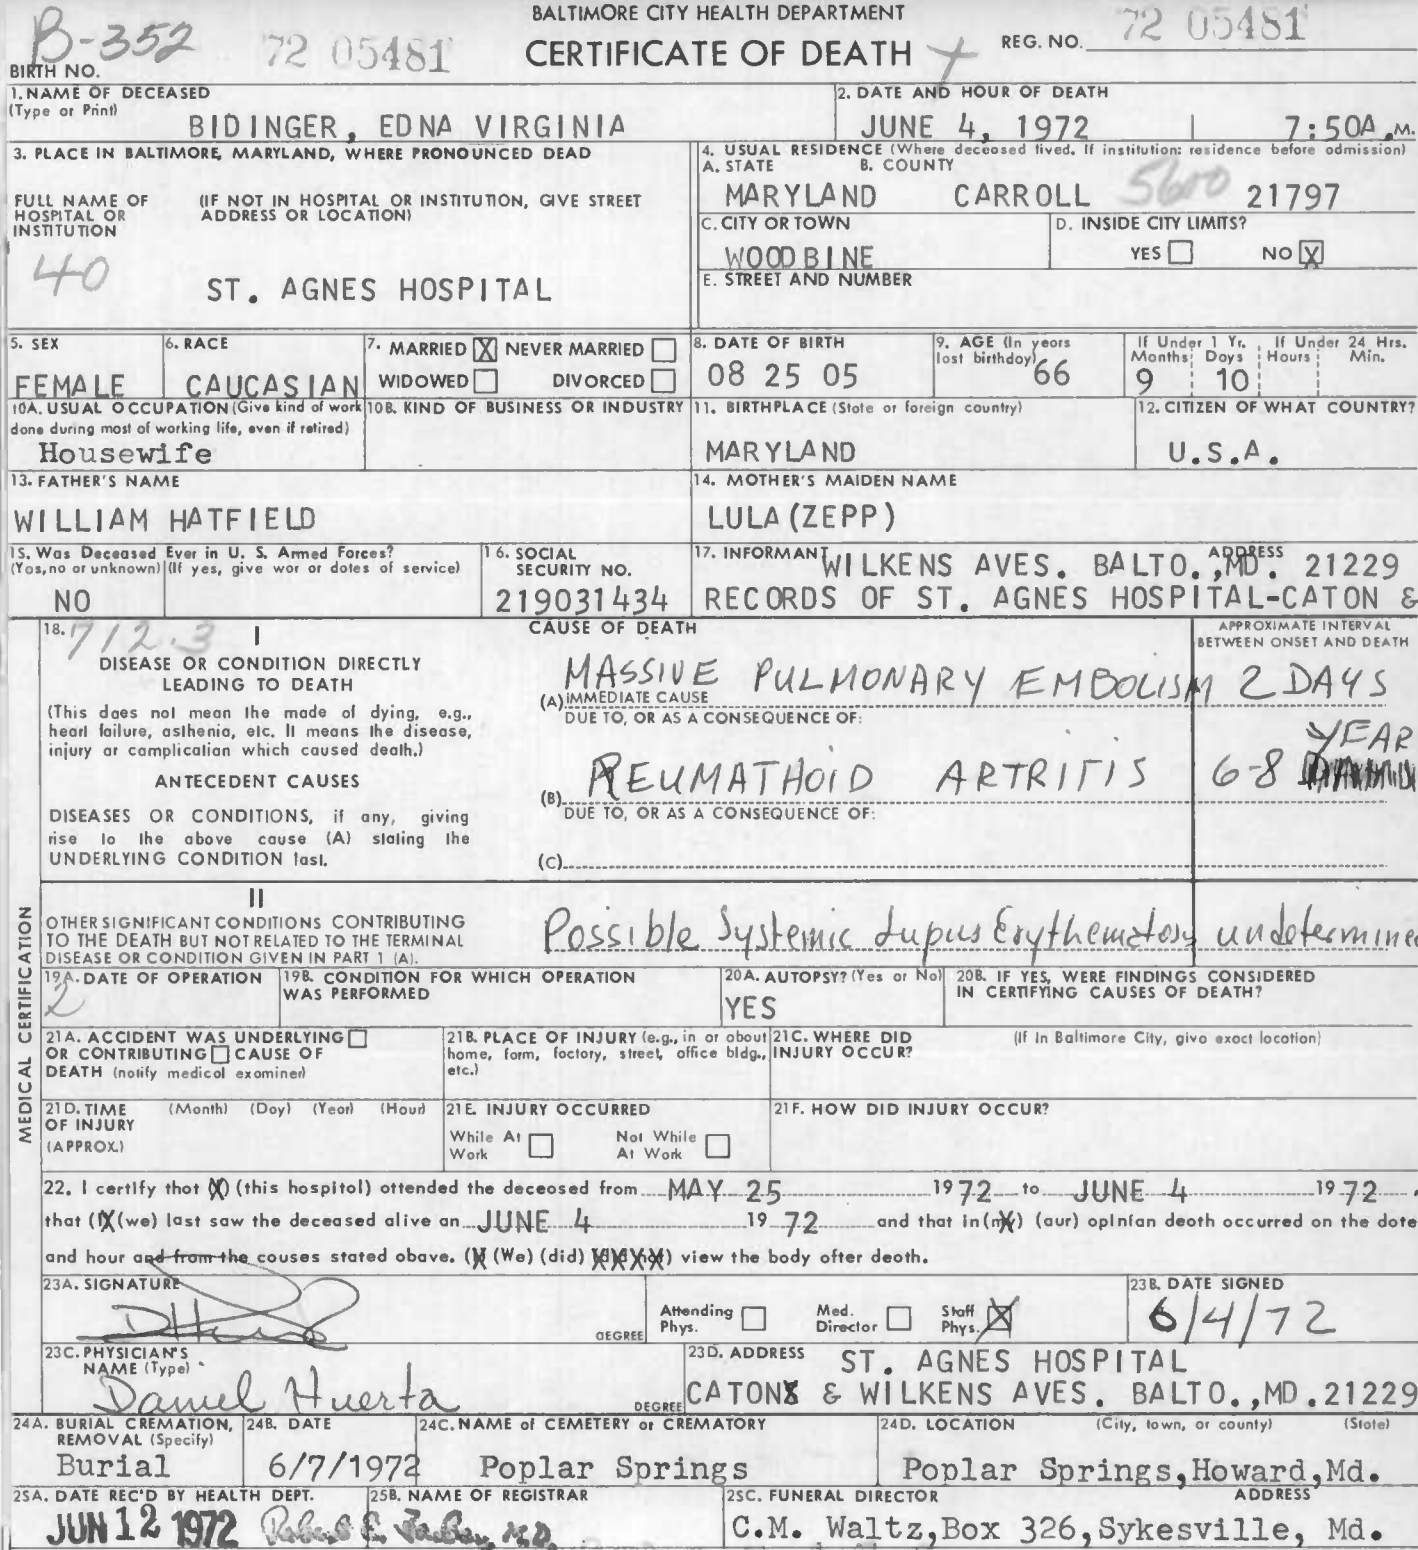 BALTIMORE CITY HEALTH DEPARTMENT
CERTIFICATE OF DEATH
B-352
72 05481
REG. NO. 72 05481
BIRTH NO.
1. NAME OF DECEASED
(Type or Print)
BIDINGER, EDNA VIRGINIA
2. DATE AND HOUR OF DEATH
JUNE 4, 1972 | 7:50A.M.
3. PLACE IN BALTIMORE, MARYLAND, WHERE PRONOUNCED DEAD
FULL NAME OF HOSPITAL OR INSTITUTION
(IF NOT IN HOSPITAL OR INSTITUTION, GIVE STREET ADDRESS OR LOCATION)
40
ST. AGNES HOSPITAL
4. USUAL RESIDENCE (Where deceased lived. If institution: residence before admission)
A. STATE B. COUNTY
MARYLAND CARROLL 5600 21797
C. CITY OR TOWN
WOODBINE
D. INSIDE CITY LIMITS?
YES NO X
E. STREET AND NUMBER
5. SEX
FEMALE
6. RACE
CAUCASIAN
7. MARRIED X NEVER MARRIED
WIDOWED DIVORCED
8. DATE OF BIRTH
08 25 05
9. AGE (In years last birthday)
66
If Under 1 Yr. Months Days
9 10
If Under 24 Hrs. Hours Min.
10A. USUAL OCCUPATION (Give kind of work done during most of working life, even if retired)
Housewife
10B. KIND OF BUSINESS OR INDUSTRY
11. BIRTHPLACE (State or foreign country)
MARYLAND
12. CITIZEN OF WHAT COUNTRY?
U.S.A.
13. FATHER'S NAME
WILLIAM HATFIELD
14. MOTHER'S MAIDEN NAME
LULA(ZEPP)
15. Was Deceased Ever in U. S. Armed Forces?
(Yes, no or unknown) (If yes, give war or dates of service)
NO
16. SOCIAL SECURITY NO.
219031434
17. INFORMANT ADDRESS
WILKENS AVES. BALTO.,MD. 21229
RECORDS OF ST. AGNES HOSPITAL-CATON &
18. 712.3
I
DISEASE OR CONDITION DIRECTLY LEADING TO DEATH
(This does not mean the mode of dying, e.g., heart failure, asthenia, etc. It means the disease, injury or complication which caused death.)
ANTECEDENT CAUSES
DISEASES OR CONDITIONS, if any, giving rise to the above cause (A) stating the UNDERLYING CONDITION last.
CAUSE OF DEATH
APPROXIMATE INTERVAL BETWEEN ONSET AND DEATH
MASSIVE PULMONARY EMBOLISM 2 DAYS
(A) IMMEDIATE CAUSE
DUE TO, OR AS A CONSEQUENCE OF:
REUMATHOID ARTRITIS 6-8 YEAR
(B)
DUE TO, OR AS A CONSEQUENCE OF:
(C)
II
OTHER SIGNIFICANT CONDITIONS CONTRIBUTING TO THE DEATH BUT NOT RELATED TO THE TERMINAL DISEASE OR CONDITION GIVEN IN PART 1 (A).
Possible Systemic Lupus Erythematosus undetermined
19A. DATE OF OPERATION
2
19B. CONDITION FOR WHICH OPERATION WAS PERFORMED
20A. AUTOPSY? (Yes or No)
YES
20B. IF YES, WERE FINDINGS CONSIDERED IN CERTIFYING CAUSES OF DEATH?
MEDICAL CERTIFICATION
21A. ACCIDENT WAS UNDERLYING OR CONTRIBUTING CAUSE OF DEATH (notify medical examiner)
21B. PLACE OF INJURY (e.g., in or about home, farm, factory, street, office bldg., etc.)
21C. WHERE DID INJURY OCCUR?
(If in Baltimore City, give exact location)
21D. TIME OF INJURY (APPROX.)
(Month) (Day) (Year) (Hour)
21E. INJURY OCCURRED
While At Work Not While At Work
21F. HOW DID INJURY OCCUR?
22. I certify that (X) (this hospital) attended the deceased from MAY 25 1972 to JUNE 4 1972,
that (X) (we) last saw the deceased alive on JUNE 4 1972 and that in (my) (our) opinion death occurred on the date
and hour and from the causes stated above. (X) (We) (did) view the body after death.
23A. SIGNATURE
DEGREE
Attending Phys. Med. Director Staff Phys. X
23B. DATE SIGNED
6/4/72
23C. PHYSICIAN'S NAME (Type)
Daniel Huerta
DEGREE
23D. ADDRESS
ST. AGNES HOSPITAL
CATON & WILKENS AVES. BALTO.,MD.21229
24A. BURIAL CREMATION, REMOVAL (Specify)
Burial
24B. DATE
6/7/1972
24C. NAME of CEMETERY or CREMATORY
Poplar Springs
24D. LOCATION (City, town, or county) (State)
Poplar Springs,Howard,Md.
25A. DATE REC'D BY HEALTH DEPT.
JUN 12 1972
25B. NAME OF REGISTRAR
Robert E. Farber, M.D.
25C. FUNERAL DIRECTOR ADDRESS
C.M. Waltz,Box 326,Sykesville, Md.